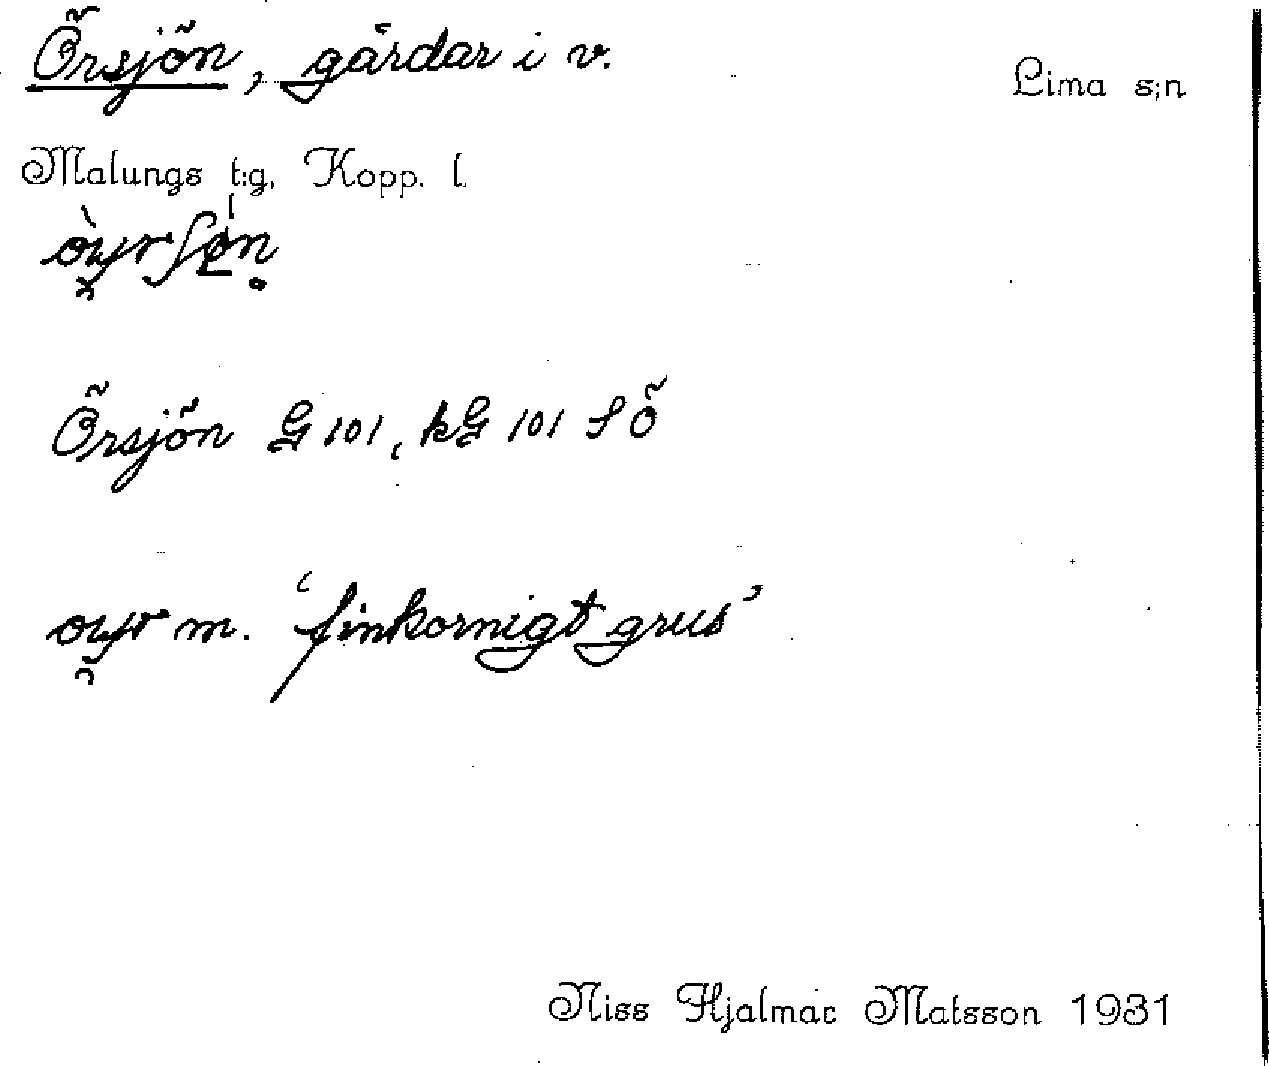 Örsjön, gårdar i v.
Lima s:n
Malungs t:g, Kopp. l.
Örsjön G 101, kG 101 S Ö
m. 'finkornigt grus'
Niss Hjalmar Matsson 1931